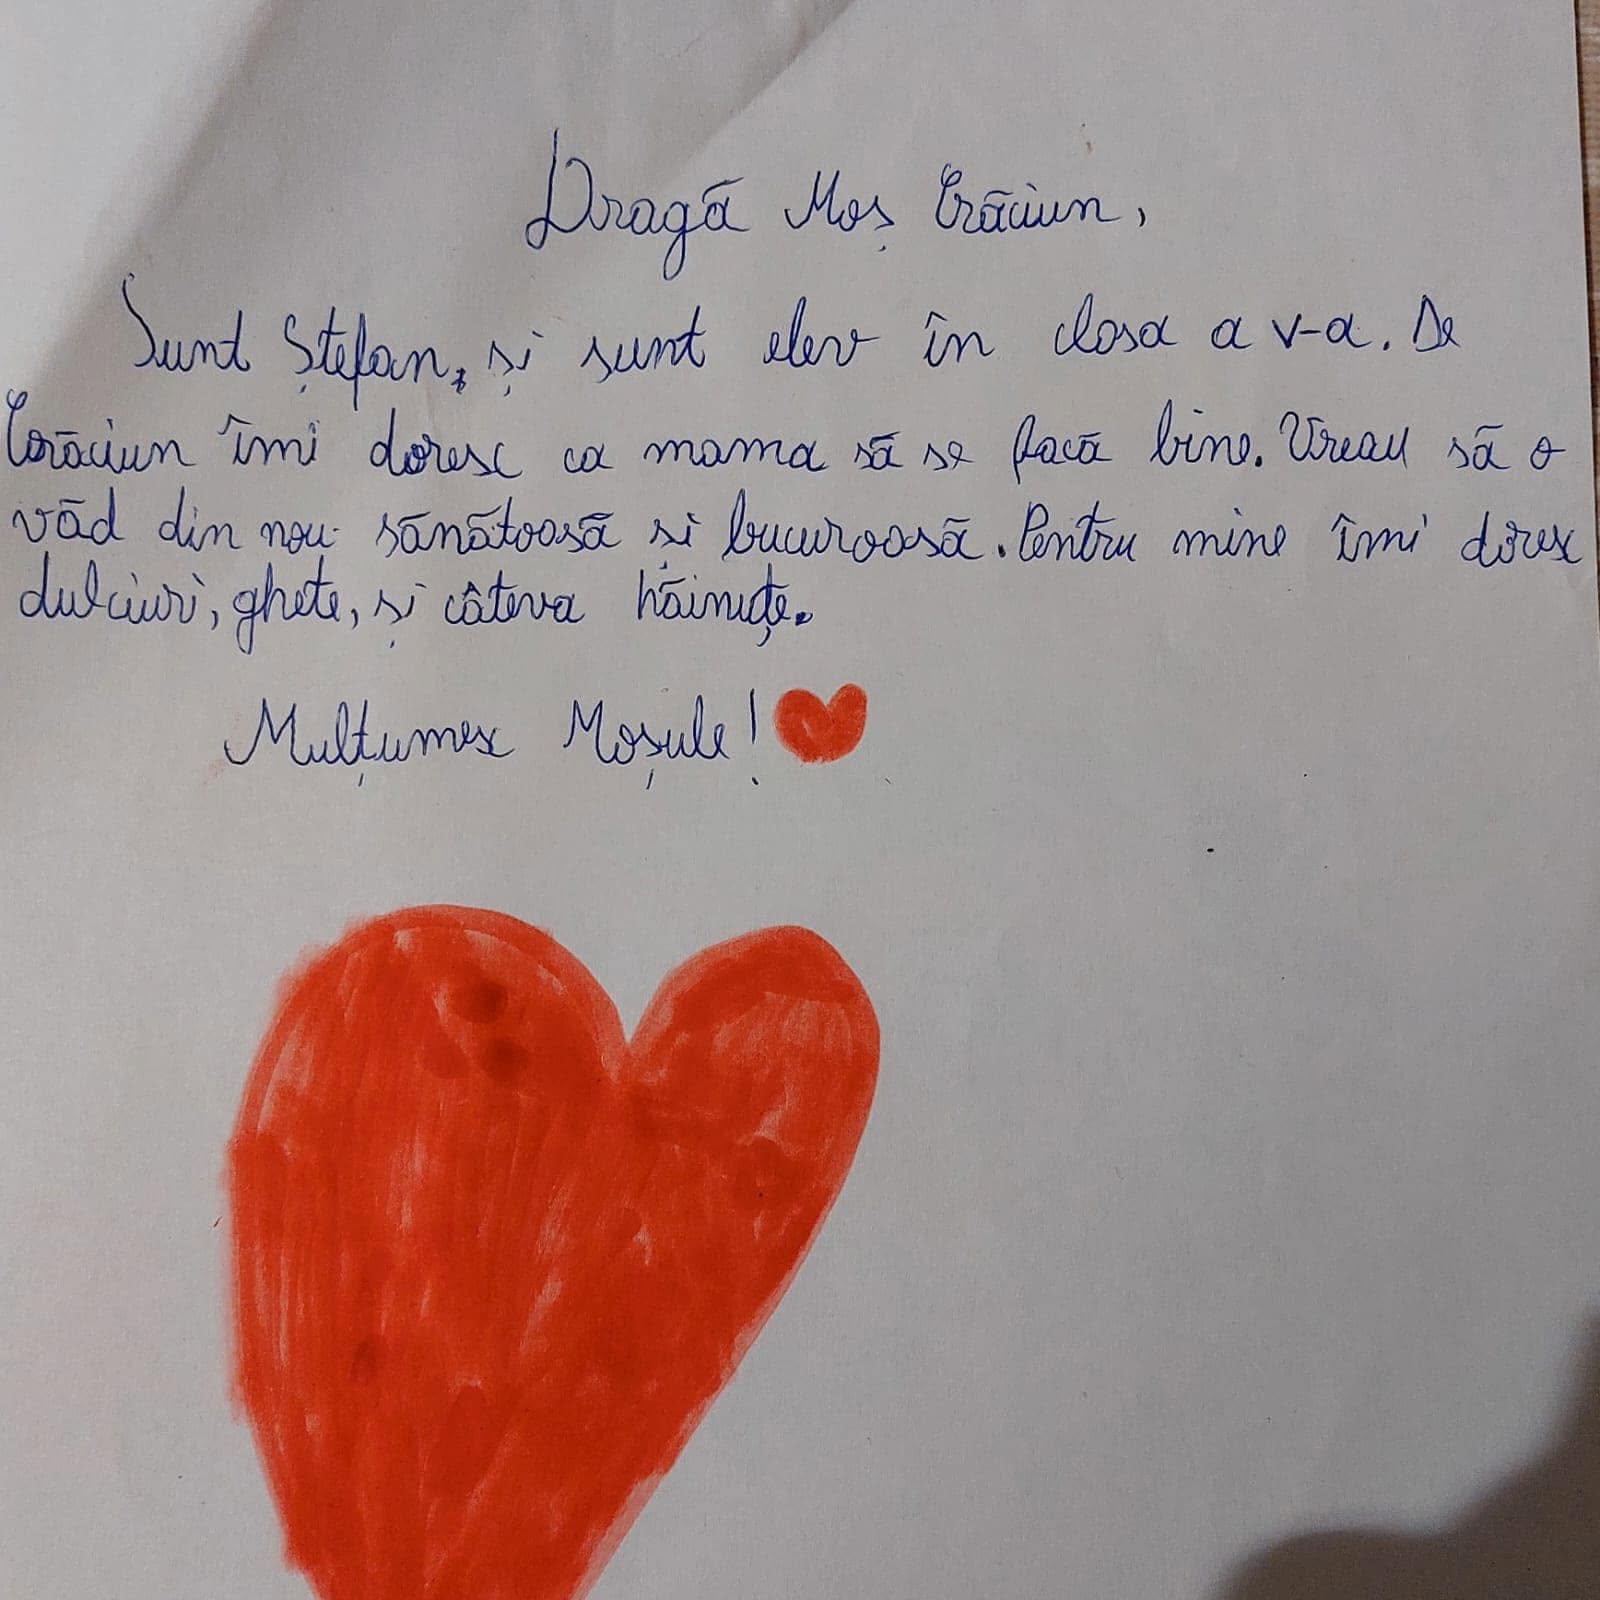 Dragă Moș Crăciun,
Sunt Ștefan, și sunt elev în clasa a V-a. De
Crăciun îmi doresc ca mama să se facă bine. Vreau să o
văd din nou sănătoasă și bucuroasă. Pentru mine îmi doresc
dulciuri, ghete, și câteva hăinuțe.
Mulțumesc Moșule!